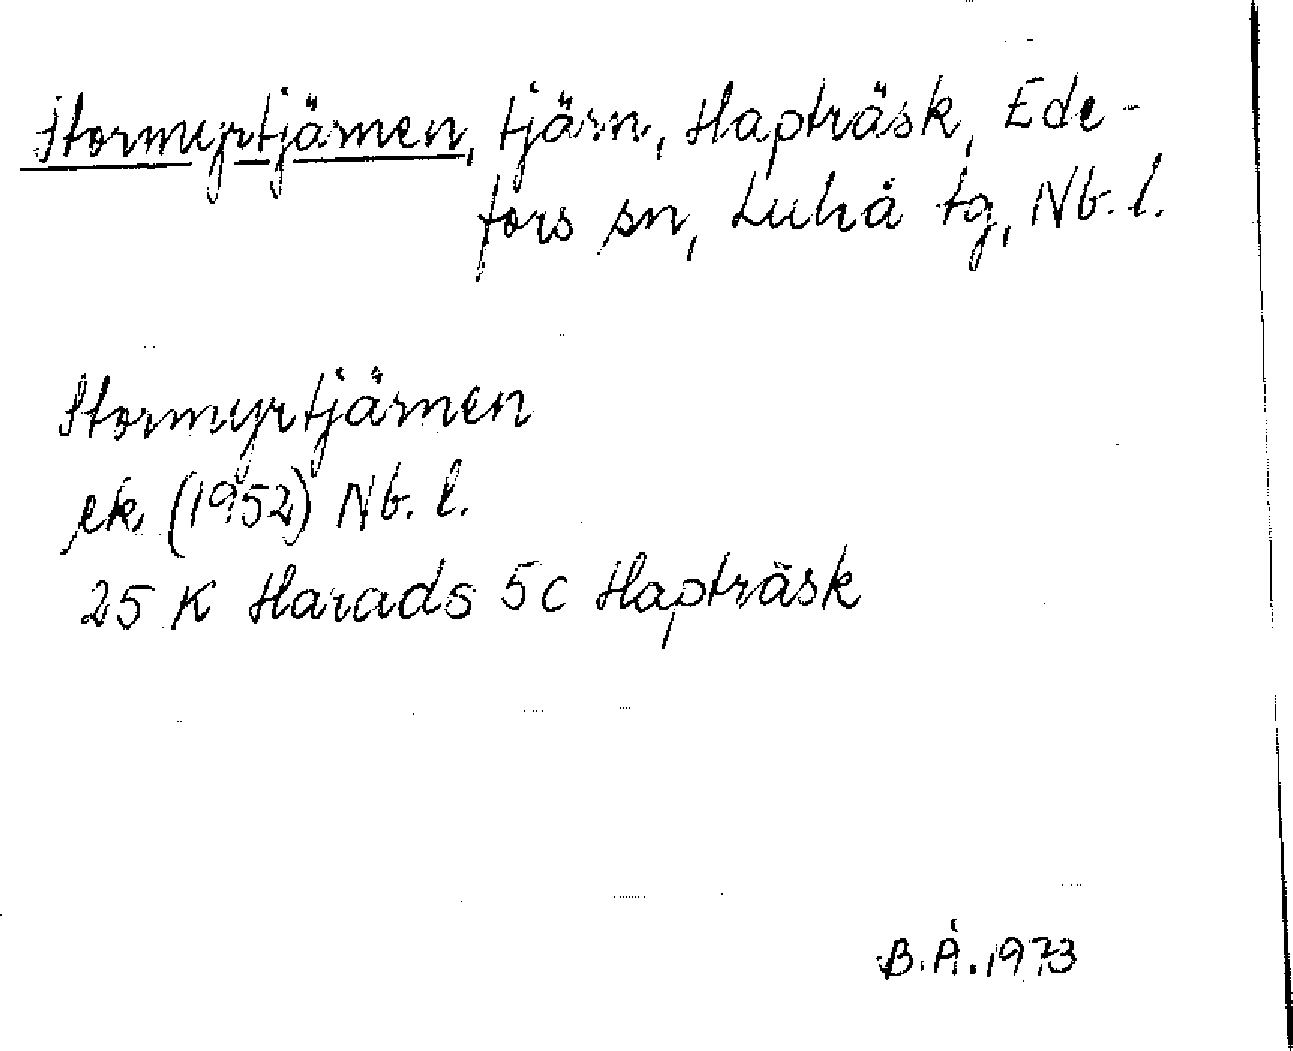 Stormyrtjärnen, tjärn, Hapträsk, Ede-
fors sn, Luleå tg, Nb. l.
Stormyrtjärnen
ek (1952) Nb. l.
25 K Harads 5c Hapträsk
B.Å. 1973